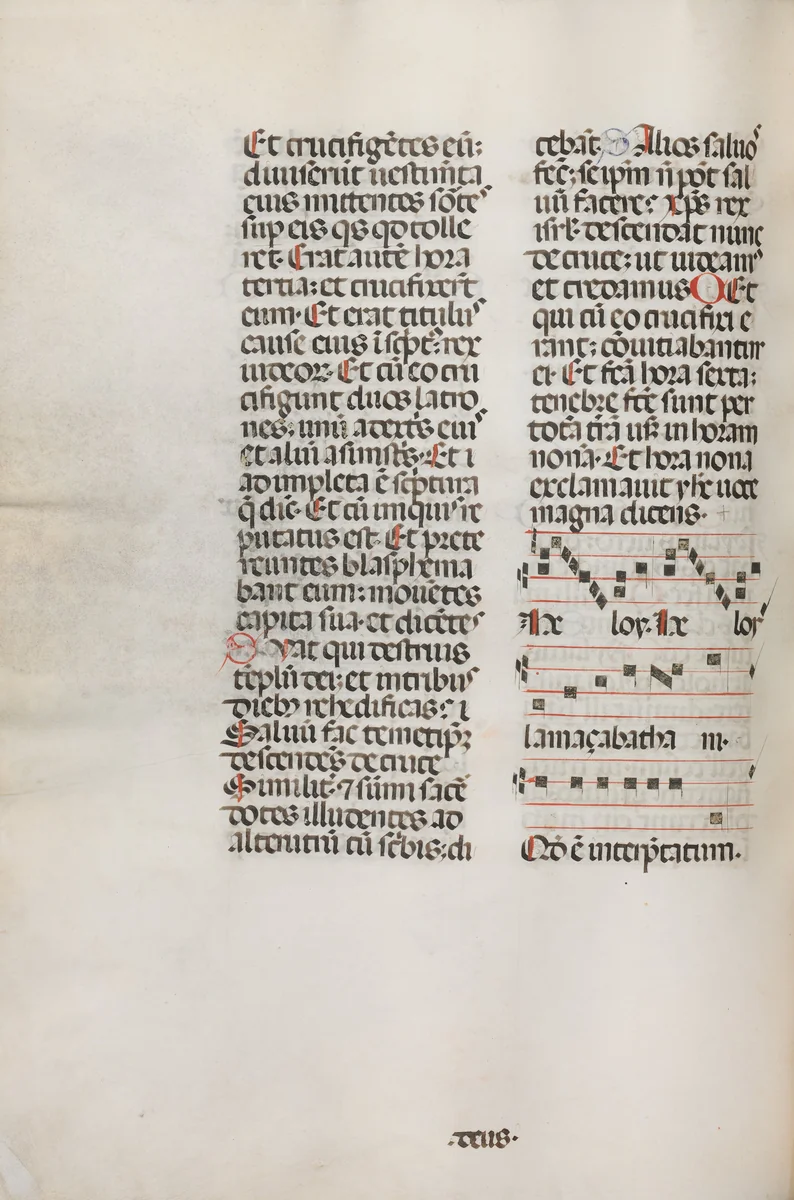 Et crucifigētes eū:
diuiserūt uestimēta
eius mittentes sorte
sup eis qs qd tolle
ret. Erat autē hora
tertia: et crucifixerūt
eum. Et erat titulus
cause eius īscpt: rex
iudeoꝝ. Et cū eo cru
cifigunt duos latro
nes: unū a dextis eius
et aliū a sinistis. Et ī
adimpleta ē scptura
q̄ dic. Et cū iniquis re
putatus est. Et prete
reuntes blasphema
bant eum: mouētes
capita sua. et dicētes
S Vat qui destruis
tēplū dei: et in tribus
dieb rehedificas: i
Saluū fac temetipꝫ
descendēs de cruce
Similit ⁊ sūmi sacē
dotes illudentes ad
alterutrū cū scbis: di
cebāt. S Alios saluos
fec: seipm n pot sal
uū facere: xps rex
isrl. descendat nunc
de cruce: ut uideams
et credamus C Et
qui cū eo crucifixi e
rant: cōuitiabantur
ei. Et fca hora sexta:
tenebre fcē sunt per
totā trā usq in horam
nonā. Et hora nona
exclamauit yhc uoce
magna dicens.
He loy. He loy
lamaçabatha ni.
Qd ē interptatum.
.deus.